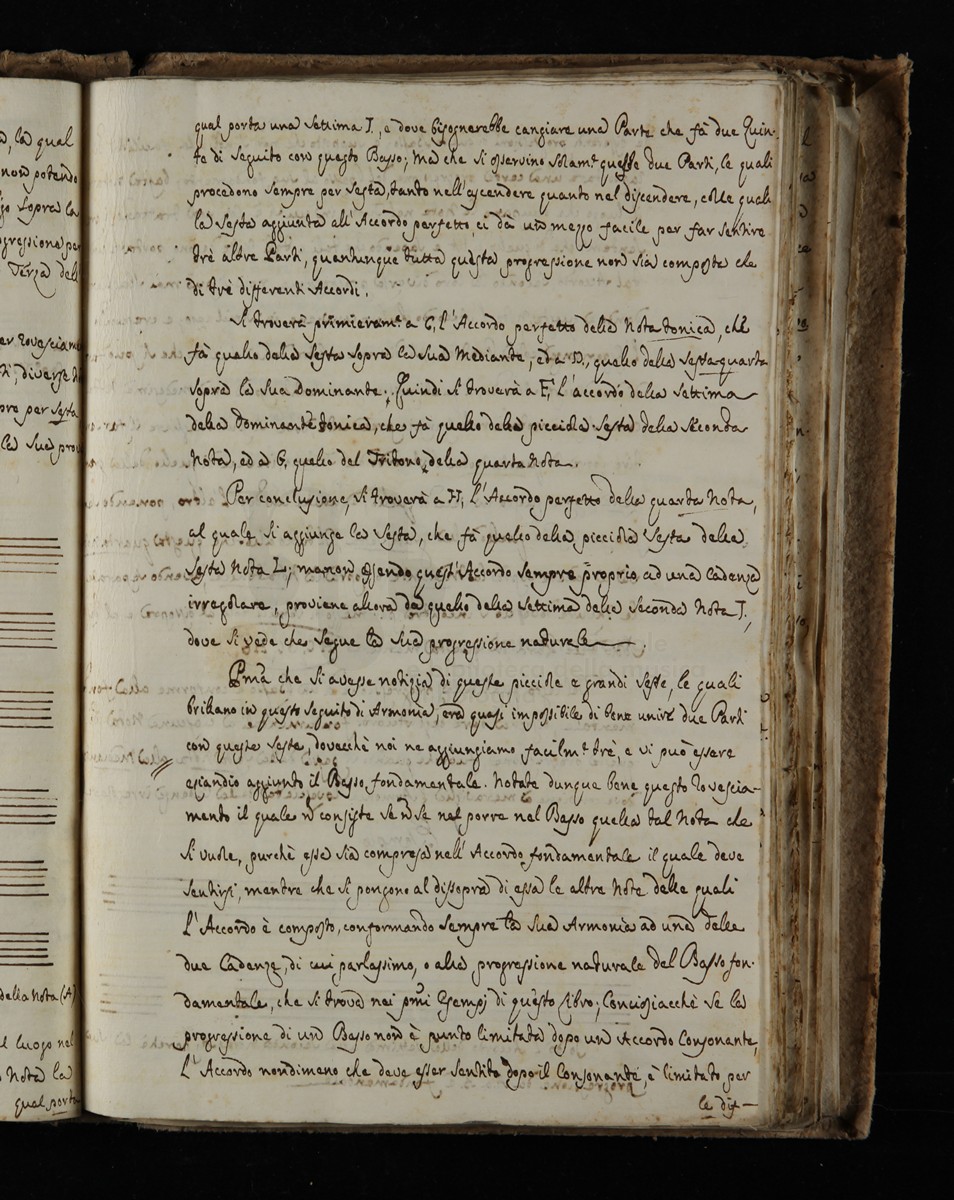 a, la qual
non potendo
go sopra la
gressione per
Terza del
er rovesciam
ti, diverse
re per Sesta
la sua pro
della Nota (A)
l luogo nel
Nota la
qual porta
qual porta una Settima J., e dove bisognerebbe cangiare una Parte che fà due Quin-
te di seguito con questo Basso; Ma che si osservino solam.te queste due Parti, le quali
procedono sempre per Sesta, tanto nell'ascendere quanto nel discendere, colle quali
la Sesta aggiunta all'Accordo perfetto, ci dà un mezzo facile per far sentire
trè altre Parti, quantunque tutta questa progressione non sia composta che
di trè differenti Accordi.
Si troverà primieram.te a C, l'Accordo perfetto della Nota tonica, che
fà quello della Sesta sopra la sua Mediante, ed a D, quello della Sesta-quarta
sopra la sua Dominante; Quindi si troverà a F, l'accordo della Settima
della Dominante tonica, che fà quello della picciola Sesta della Seconda
Nota, ed a G, quello del Tritono, della quarta Nota.
Per conclusione, si troverà a H, l'Accordo perfetto della quarta Nota,
al quale si aggiunge la Sesta, che fà quello della picciola Sesta della
Sesta Nota L; ma non essendo quest'Accordo sempre proprio ad una Cadenza
irregolare, proviene allora da quello della Settima della Seconda Nota J,
dove si vede che segue la sua progressione naturale.
Pma che si avesse notizia di queste picciole e grandi Seste, le quali
brillano in questo seguito di Armonia, era quasi impossibile di bene unire due Parti
con queste Seste, dovecchè noi ne aggiungiamo facilm.te trè, e vi può essere
eziandio aggiunto il Basso fondamentale. Notate dunque bene questo rovescia-
mento il quale n consiste se n se nel porre nel Basso quella tal Nota che
si vuole, purchè essa sia compresa nell'Accordo fondamentale il quale deve
sentirsi, mentre che si pongono al dissopra di essa le altre Note delle quali
l'Accordo è composto, conformando sempre la sua Armonia ad una delle
due Cadenze, di cui parlassimo, o alla progressione naturale del Basso fon-
damentale, che si trova nei pmi Esempj di questo Libro; Conciosiacchè se la
progressione di un Basso non è punto limitata dopo un Accordo Consonante,
l'Accordo nondimeno che deve esser sentito dopo il Consonante, è limitato per
le dis-